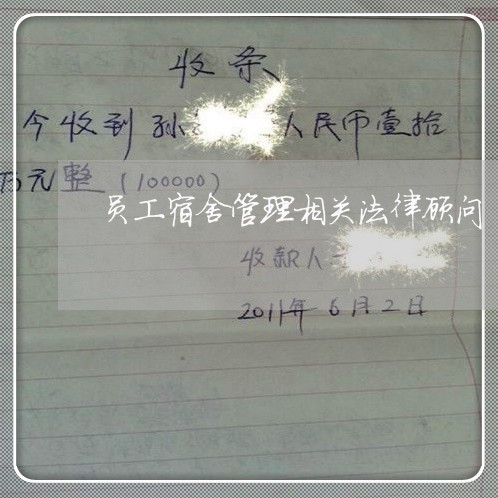 收条
今收到孙人民币壹拾
万元整(100000)
员工宿舍管理相关法律顾问
收款人
2011年6月2日